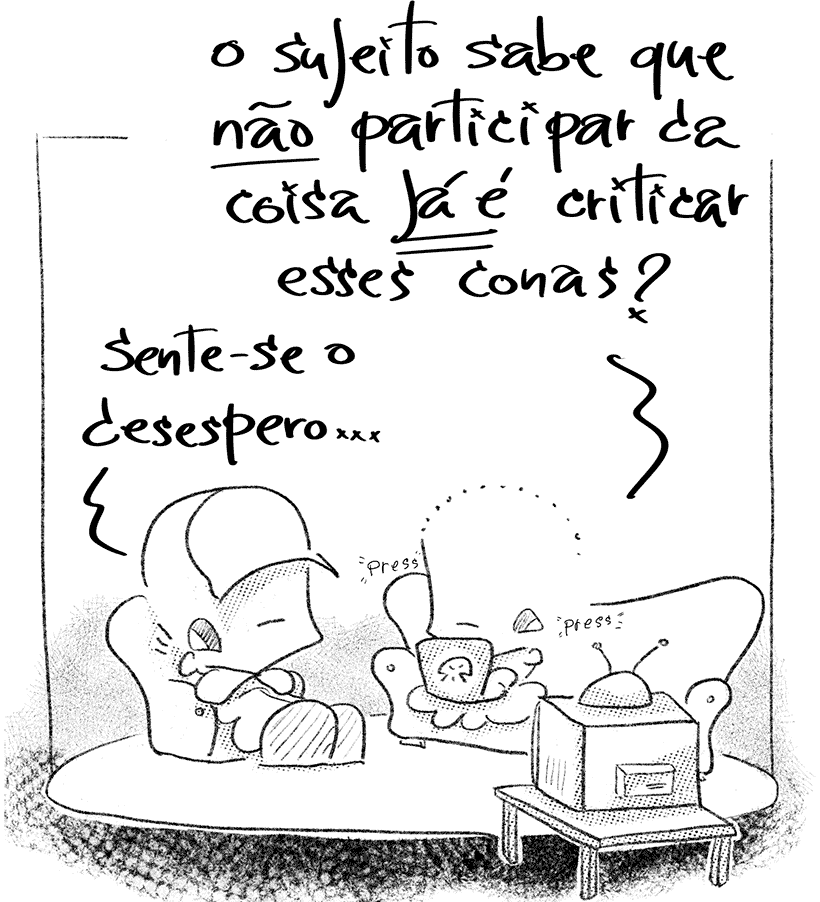 o sujeito sabe que
não participar da
coisa já é criticar
esses conas?
Sente-se o
desespero...
press
press